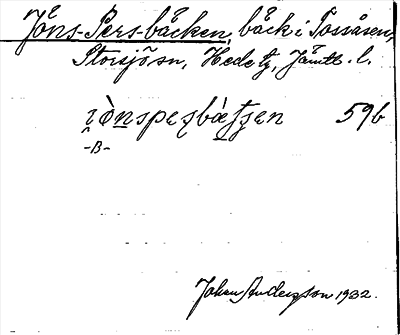 Jöns-Pers-bäcken, bäck i Tossåsen,
Storsjö sn, Hede tg, Jämtl. l.
ı̯ònspeʂbæ̀tʂen 59b
-B-
Johan Anderzon 1932.